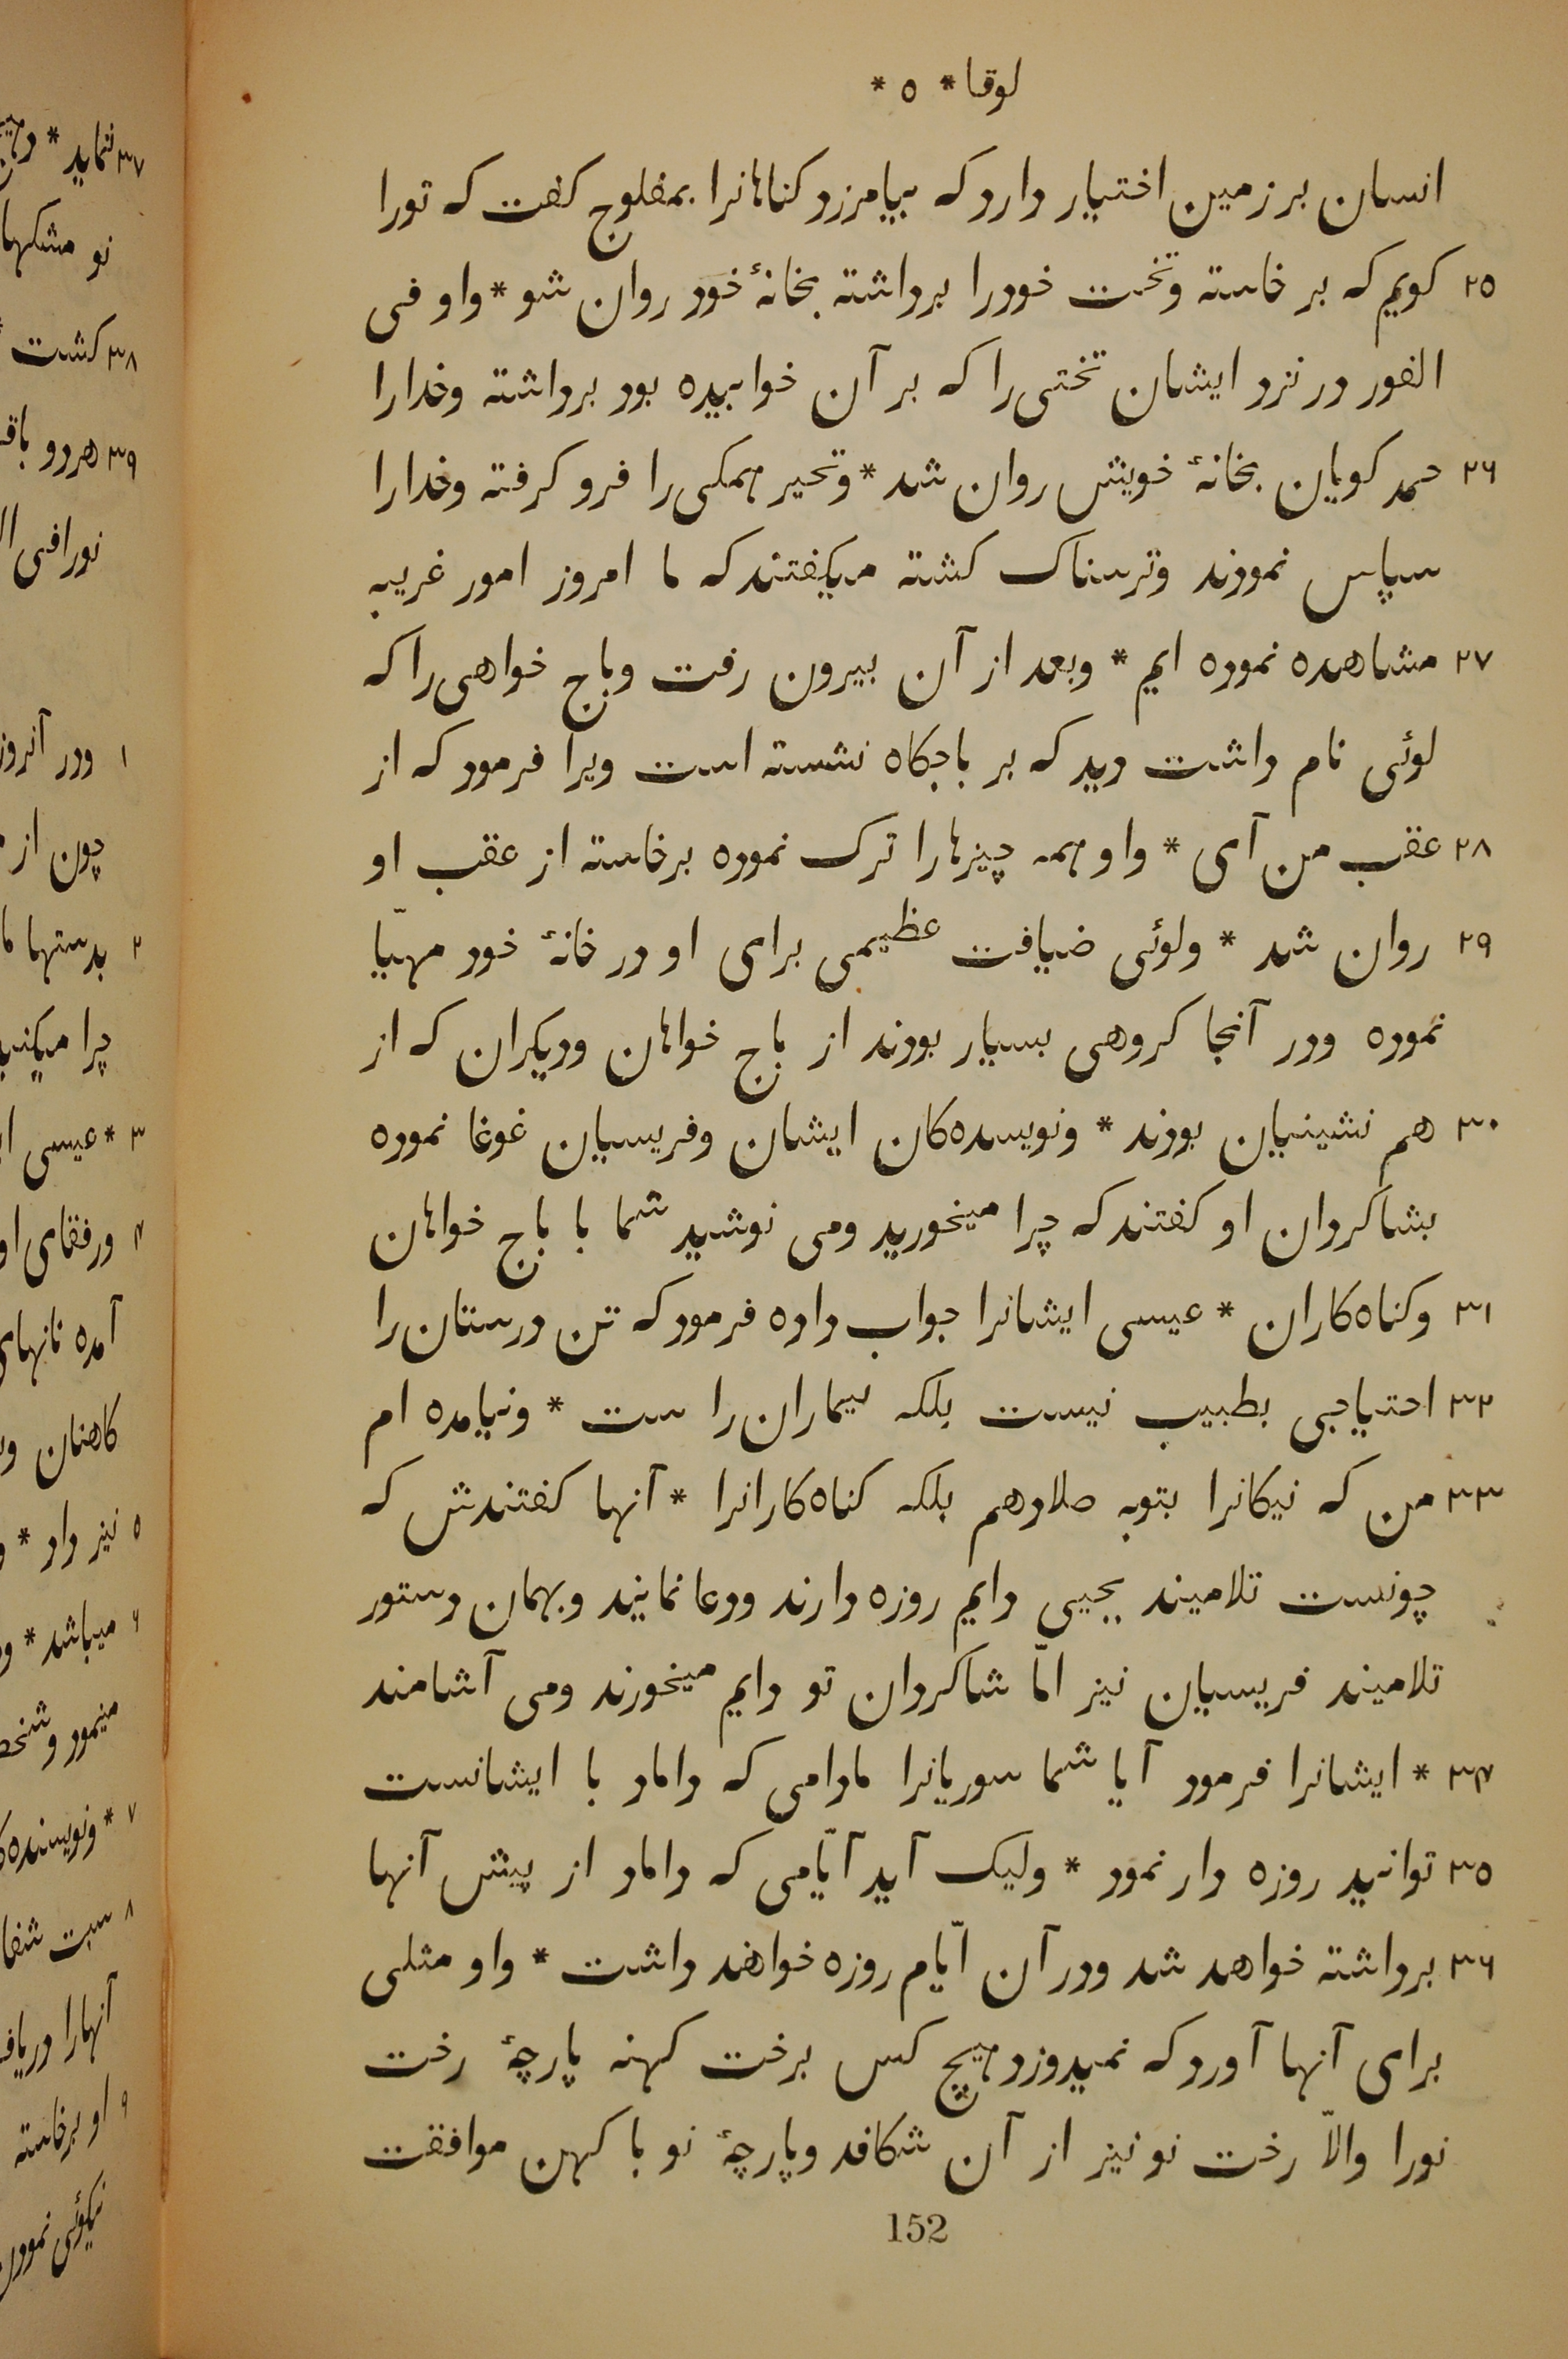 لوقا * ٥ *
انسان بر زمین اختیار دارد که بیامرزد کناهانرا بمفلوج کفت که تورا
٢٥ کویم که بر خاسته وتخت خودرا برداشته بخانهٔ خود روان شو * واو فی
الفور در نزد ایشان تختی را که بر آن خوابیده بود برداشته وخدارا
٢٦ حمد کویان بخانهٔ خویش روان شد * وتحیر همکی را فرو کرفته وخدارا
سپاس نمودند وترسناک کشته میکفتند که ما امروز امور غریبه
٢٧ مشاهده نموده ایم * وبعد از آن بیرون رفت وباج خواهی را که
لوئی نام داشت دید که بر باجکاه نشسته است ویرا فرمود که از
٢٨ عقب من آی * واو همه چیزهارا ترک نموده برخاسته از عقب او
٢٩ روان شد * ولوئی ضیافت عظیمی برای او در خانهٔ خود مهیّا
نموده ودر آنجا کروهی بسیار بودند از باج خواهان ودیکران که از
٣٠ هم نشینیان بودند * ونویسده‌کان ایشان وفریسیان غوغا نموده
بشاکردان او کفتند که چرا میخورید ومی نوشید شما با باج خواهان
٣١ وکناه‌کاران * عیسی ایشانرا جواب داده فرمود که تن درستان را
٣٢ احتیاجی بطبیب نیست بلکه بیماران را ست * ونیامده ام
٣٣ من که نیکانرا بتوبه صلا دهم بلکه کناه‌کارانرا * آنها کفتندش که
چونست تلامیند یحیی دایم روزه دارند ودعا نمایند وبهمان دستور
تلامیند فریسیان نیز امّا شاکردان تو دایم میخورند ومی آشامند
٣٤ * ایشانرا فرمود آیا شما سوریانرا مادامی که داماد با ایشانست
٣٥ توانید روزه دار نمود * ولیک آید آیّامی که داماد از پیش آنها
٣٦ برداشته خواهد شد ودر آن ایّام روزه خواهند داشت * واو مثلی
برای آنها آورد که نمیدوزد هیچ کس برخت کهنه پارچهٔ رخت
نورا والّا رخت نو نیز از آن شکافد وپارچهٔ نو با کهن موافقت
152